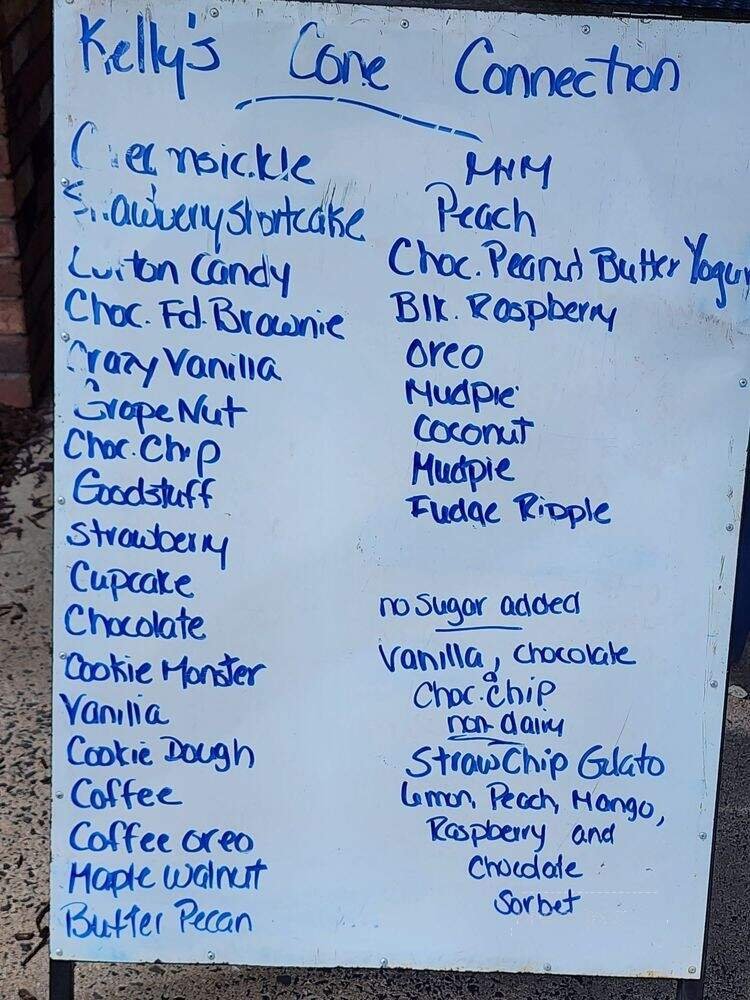 Kelly's Cone Connection
Creamsickle
Strawberry Shortcake
Cotton Candy
Choc. Fd. Brownie
Crazy Vanilla
Grape Nut
Choc. Chip
Goodstuff
Strawberry
Cupcake
Chocolate
Cookie Monster
Vanilla
Cookie Dough
Coffee
Coffee oreo
Maple walnut
Butter Pecan
MNM
Peach
Choc. Peanut Butter Yogur
Blk. Raspberry
oreo
Mudpie
Coconut
Mudpie
Fudge Ripple
no sugar added
Vanilla, chocolate
Choc. chip
non-dairy
Straw Chip Gelato
Lemon, Peach, Mango,
Raspberry and
Chocolate
Sorbet